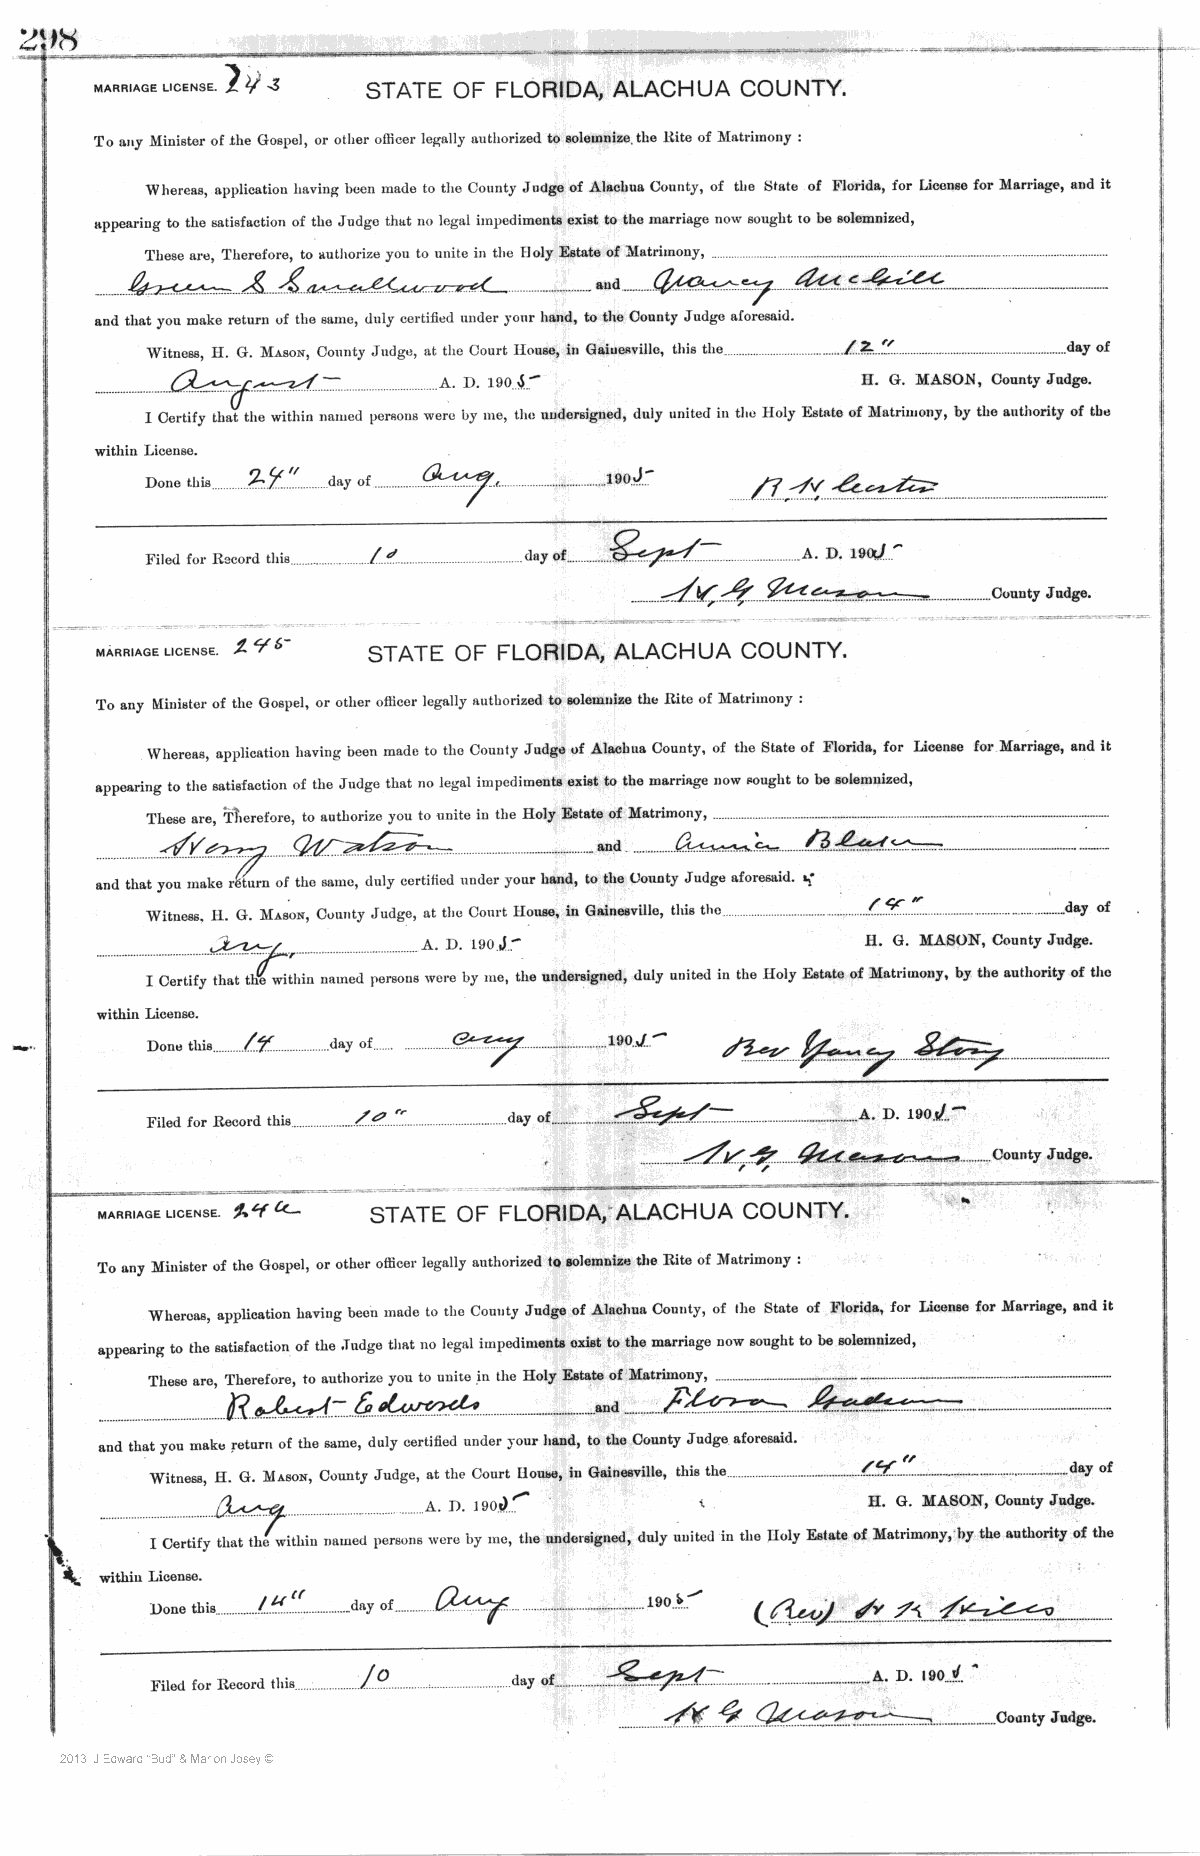 298
MARRIAGE LICENSE. 243 STATE OF FLORIDA, ALACHUA COUNTY.
To any Minister of the Gospel, or other officer legally authorized to solemnize the Rite of Matrimony :
Whereas, application having been made to the County Judge of Alachua County, of the State of Florida, for License for Marriage, and it
appearing to the satisfaction of the Judge that no legal impediments exist to the marriage now sought to be solemnized,
These are, Therefore, to authorize you to unite in the Holy Estate of Matrimony,
Green S Smallwood and Nancy McGill
and that you make return of the same, duly certified under your hand, to the County Judge aforesaid.
Witness, H. G. MASON, County Judge, at the Court House, in Gainesville, this the 12" day of
August A. D. 1905 H. G. MASON, County Judge.
I Certify that the within named persons were by me, the undersigned, duly united in the Holy Estate of Matrimony, by the authority of the
within License.
Done this 24" day of Aug. 1905 R. H.
Filed for Record this 10 day of Sept A. D. 1905
H. G. Mason County Judge.
MARRIAGE LICENSE. 245 STATE OF FLORIDA, ALACHUA COUNTY.
To any Minister of the Gospel, or other officer legally authorized to solemnize the Rite of Matrimony :
Whereas, application having been made to the County Judge of Alachua County, of the State of Florida, for License for Marriage, and it
appearing to the satisfaction of the Judge that no legal impediments exist to the marriage now sought to be solemnized,
These are, Therefore, to authorize you to unite in the Holy Estate of Matrimony,
Henry Watson and Annie
and that you make return of the same, duly certified under your hand, to the County Judge aforesaid.
Witness, H. G. MASON, County Judge, at the Court House, in Gainesville, this the 14" day of
Aug. A. D. 1905 H. G. MASON, County Judge.
I Certify that the within named persons were by me, the undersigned, duly united in the Holy Estate of Matrimony, by the authority of the
within License.
Done this 14 day of Aug 1905 Rev Yancy Story
Filed for Record this 10" day of Sept A. D. 1905
H. G. Mason County Judge.
MARRIAGE LICENSE. 246 STATE OF FLORIDA, ALACHUA COUNTY.
To any Minister of the Gospel, or other officer legally authorized to solemnize the Rite of Matrimony :
Whereas, application having been made to the County Judge of Alachua County, of the State of Florida, for License for Marriage, and it
appearing to the satisfaction of the Judge that no legal impediments exist to the marriage now sought to be solemnized,
These are, Therefore, to authorize you to unite in the Holy Estate of Matrimony,
Robert Edwards and Flora Gadson
and that you make return of the same, duly certified under your hand, to the County Judge aforesaid.
Witness, H. G. MASON, County Judge, at the Court House, in Gainesville, this the 14" day of
Aug A. D. 1905 H. G. MASON, County Judge.
I Certify that the within named persons were by me, the undersigned, duly united in the Holy Estate of Matrimony, by the authority of the
within License.
Done this 14" day of Aug 1905 (Rev) H K Hills
Filed for Record this 10 day of Sept A. D. 1905
H G Mason County Judge.
2013 J Edward "Bud" & Marion Josey ©